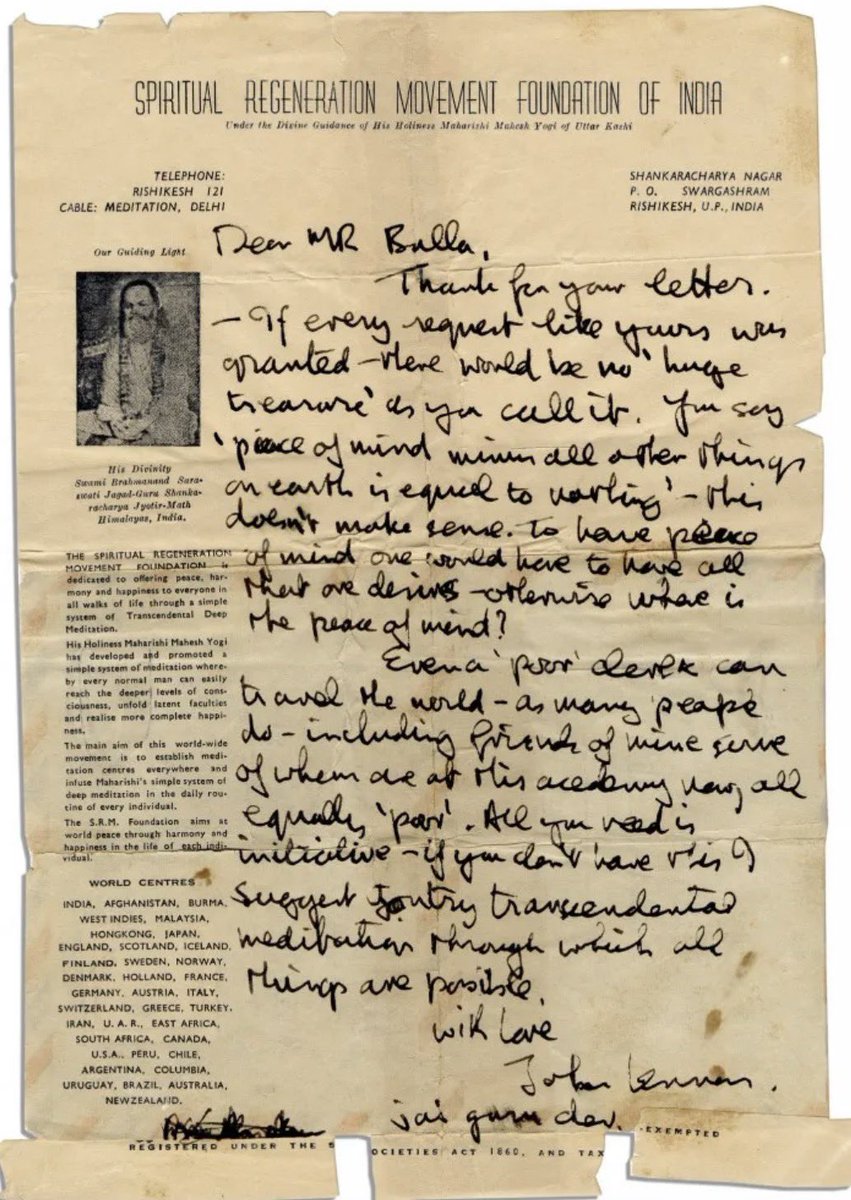 SPIRITUAL REGENERATION MOVEMENT FOUNDATION OF INDIA
Under the Divine Guidance of His Holiness Maharishi Mahesh Yogi of Uttar Kashi
TELEPHONE:
RISHIKESH 121
CABLE: MEDITATION, DELHI
SHANKARACHARYA NAGAR
P. O. SWARGASHRAM
RISHIKESH, U.P., INDIA
Our Guiding Light
His Divinity
Swami Brahmanand Sara-
swati Jagad-Guru Shanka-
racharya Jyotir-Math
Himalayas, India.
THE SPIRITUAL REGENERATION
MOVEMENT FOUNDATION is
dedicated to offering peace, har-
mony and happiness to everyone in
all walks of life through a simple
system of Transcendental Deep
Meditation.
His Holiness Maharishi Mahesh Yogi
has developed and promoted a
simple system of meditation where-
by every normal man can easily
reach the deeper levels of cons-
ciousness, unfold latent faculties
and realise more complete happi-
ness.
The main aim of this world-wide
movement is to establish medi-
tation centres everywhere and
infuse Maharishi's simple system of
deep meditation in the daily rou-
tine of every individual.
The S.R.M. Foundation aims at
world peace through harmony and
happiness in the life of each indi-
vidual.
WORLD CENTRES
INDIA, AFGHANISTAN, BURMA,
WEST INDIES, MALAYSIA,
HONGKONG, JAPAN,
ENGLAND, SCOTLAND, ICELAND,
FINLAND, SWEDEN, NORWAY,
DENMARK, HOLLAND, FRANCE,
GERMANY, AUSTRIA, ITALY,
SWITZERLAND, GREECE, TURKEY,
IRAN, U. A. R., EAST AFRICA,
SOUTH AFRICA, CANADA,
U.S.A., PERU, CHILE,
ARGENTINA, COLUMBIA,
URUGUAY, BRAZIL, AUSTRALIA,
NEWZEALAND.
Dear MR Bulla,
Thank for your letter.
- If every request like yours was
granted - there would be no 'huge
treasure' as you call it. You say
'peace of mind minus all other things
on earth is equal to nothing' - this
doesn't make sense. To have peace
of mind one would have to have all
that one desires - otherwise where is
the peace of mind?
Even a 'poor' clerk can
travel the world - as many people
do - including friends of mine some
of whom are at this academy now, all
equally 'poor'. All you need is
initiative - if you don't have this I
suggest you try transcendental
meditation through which all
things are possible.
with love
John Lennon.
jai guru dev.
REGISTERED UNDER THE S OCIETIES ACT 1860, AND TAX EXEMPTED